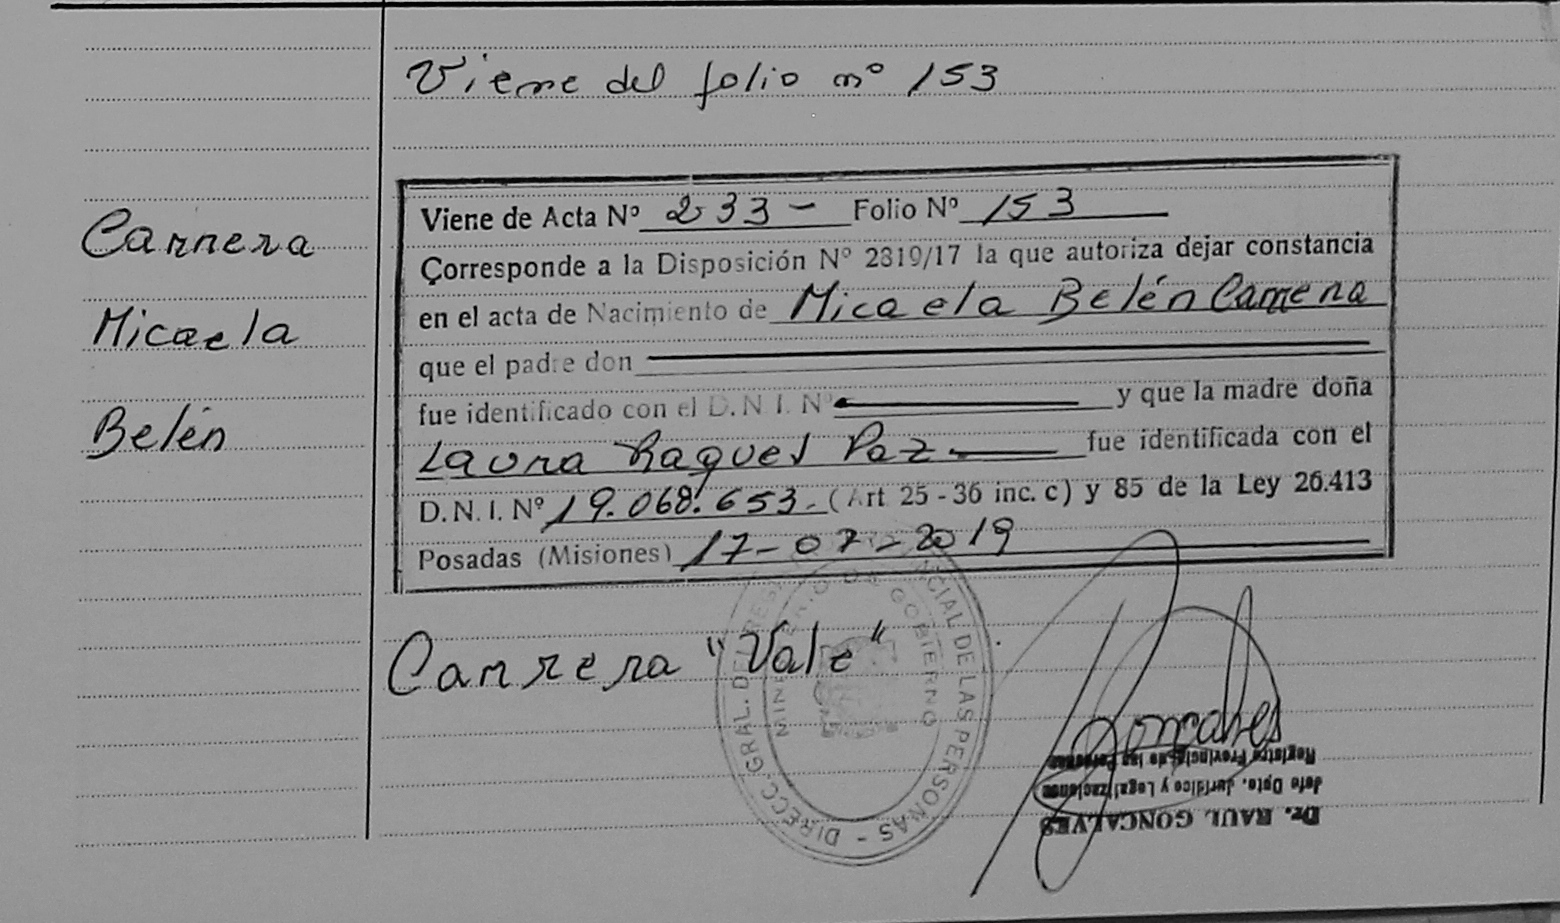 Viene del folio nº 153
Carrera
Micaela
Belén
Viene de Acta Nº 233 - Folio Nº 153
Corresponde a la Disposición Nº 2819/17 la que autoriza dejar constancia
en el acta de Nacimiento de Micaela Belén Carrera
que el padre don
fue identificado con el D. N. I. Nº y que la madre doña
Laura Raquel Paz fue identificada con el
D. N. I. Nº 19.068.653. (Art 25 - 36 inc. c) y 85 de la Ley 26.413
Posadas (Misiones) 17-07-2019
Carrera "Vale"
DIRECC. GRAL. DEL REG. CIAL DE LAS PERSONAS -
MINISTERIO DE GOBIERNO
Goncalves
Dr. RAUL GONCALVES
Jefe Dpto. Jurídico y Legalizaciones
Registro Provincial de las Personas